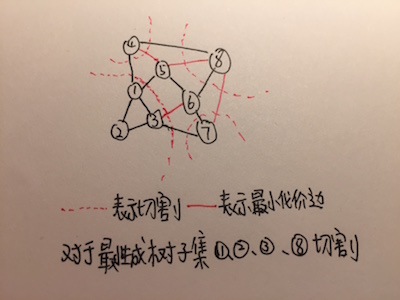 ④
⑧
⑤
①
⑥
②
③
⑦
表示切割 表示最小代价边
对于最生成树子集①、②、③、⑧切割